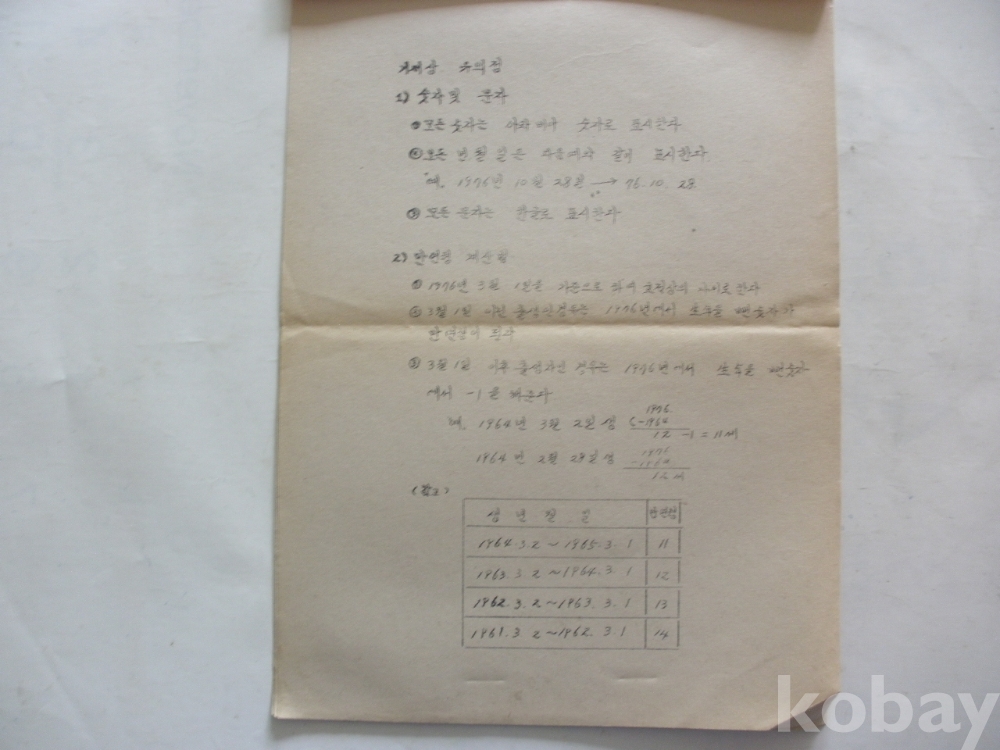 기재상 유의점
1) 숫자 및 문자
① 모든 숫자는 아라비아 숫자로 표시한다
② 모든 년.월.일은 다음 예와 같이 표시한다.
예. 1976년 10월 28일 → 76.10.28.
③ 모든 문자는 한글로 표시한다
2) 만연령 계산법
① 1976년 3월 1일을 기준으로 하여 호적상의 나이로 한다
② 3월 1일 이전 출생한 경우는 1976년에서 생년을 뺀 숫자가
만연령이 된다
③ 3월 1일 이후 출생자인 경우는 1976년에서 생년을 뺀 숫자
에서 -1을 해준다
예. 1964년 3월 2일생 1976 -1964 12 -1 = 11세
1964년 2월 28일생 1976 -1964 12세
(참고)
생 년 월 일 만연령
1964.3.2~1965.3.1 11
1963.3.2~1964.3.1 12
1962.3.2~1963.3.1 13
1961.3.2~1962.3.1 14
kobay